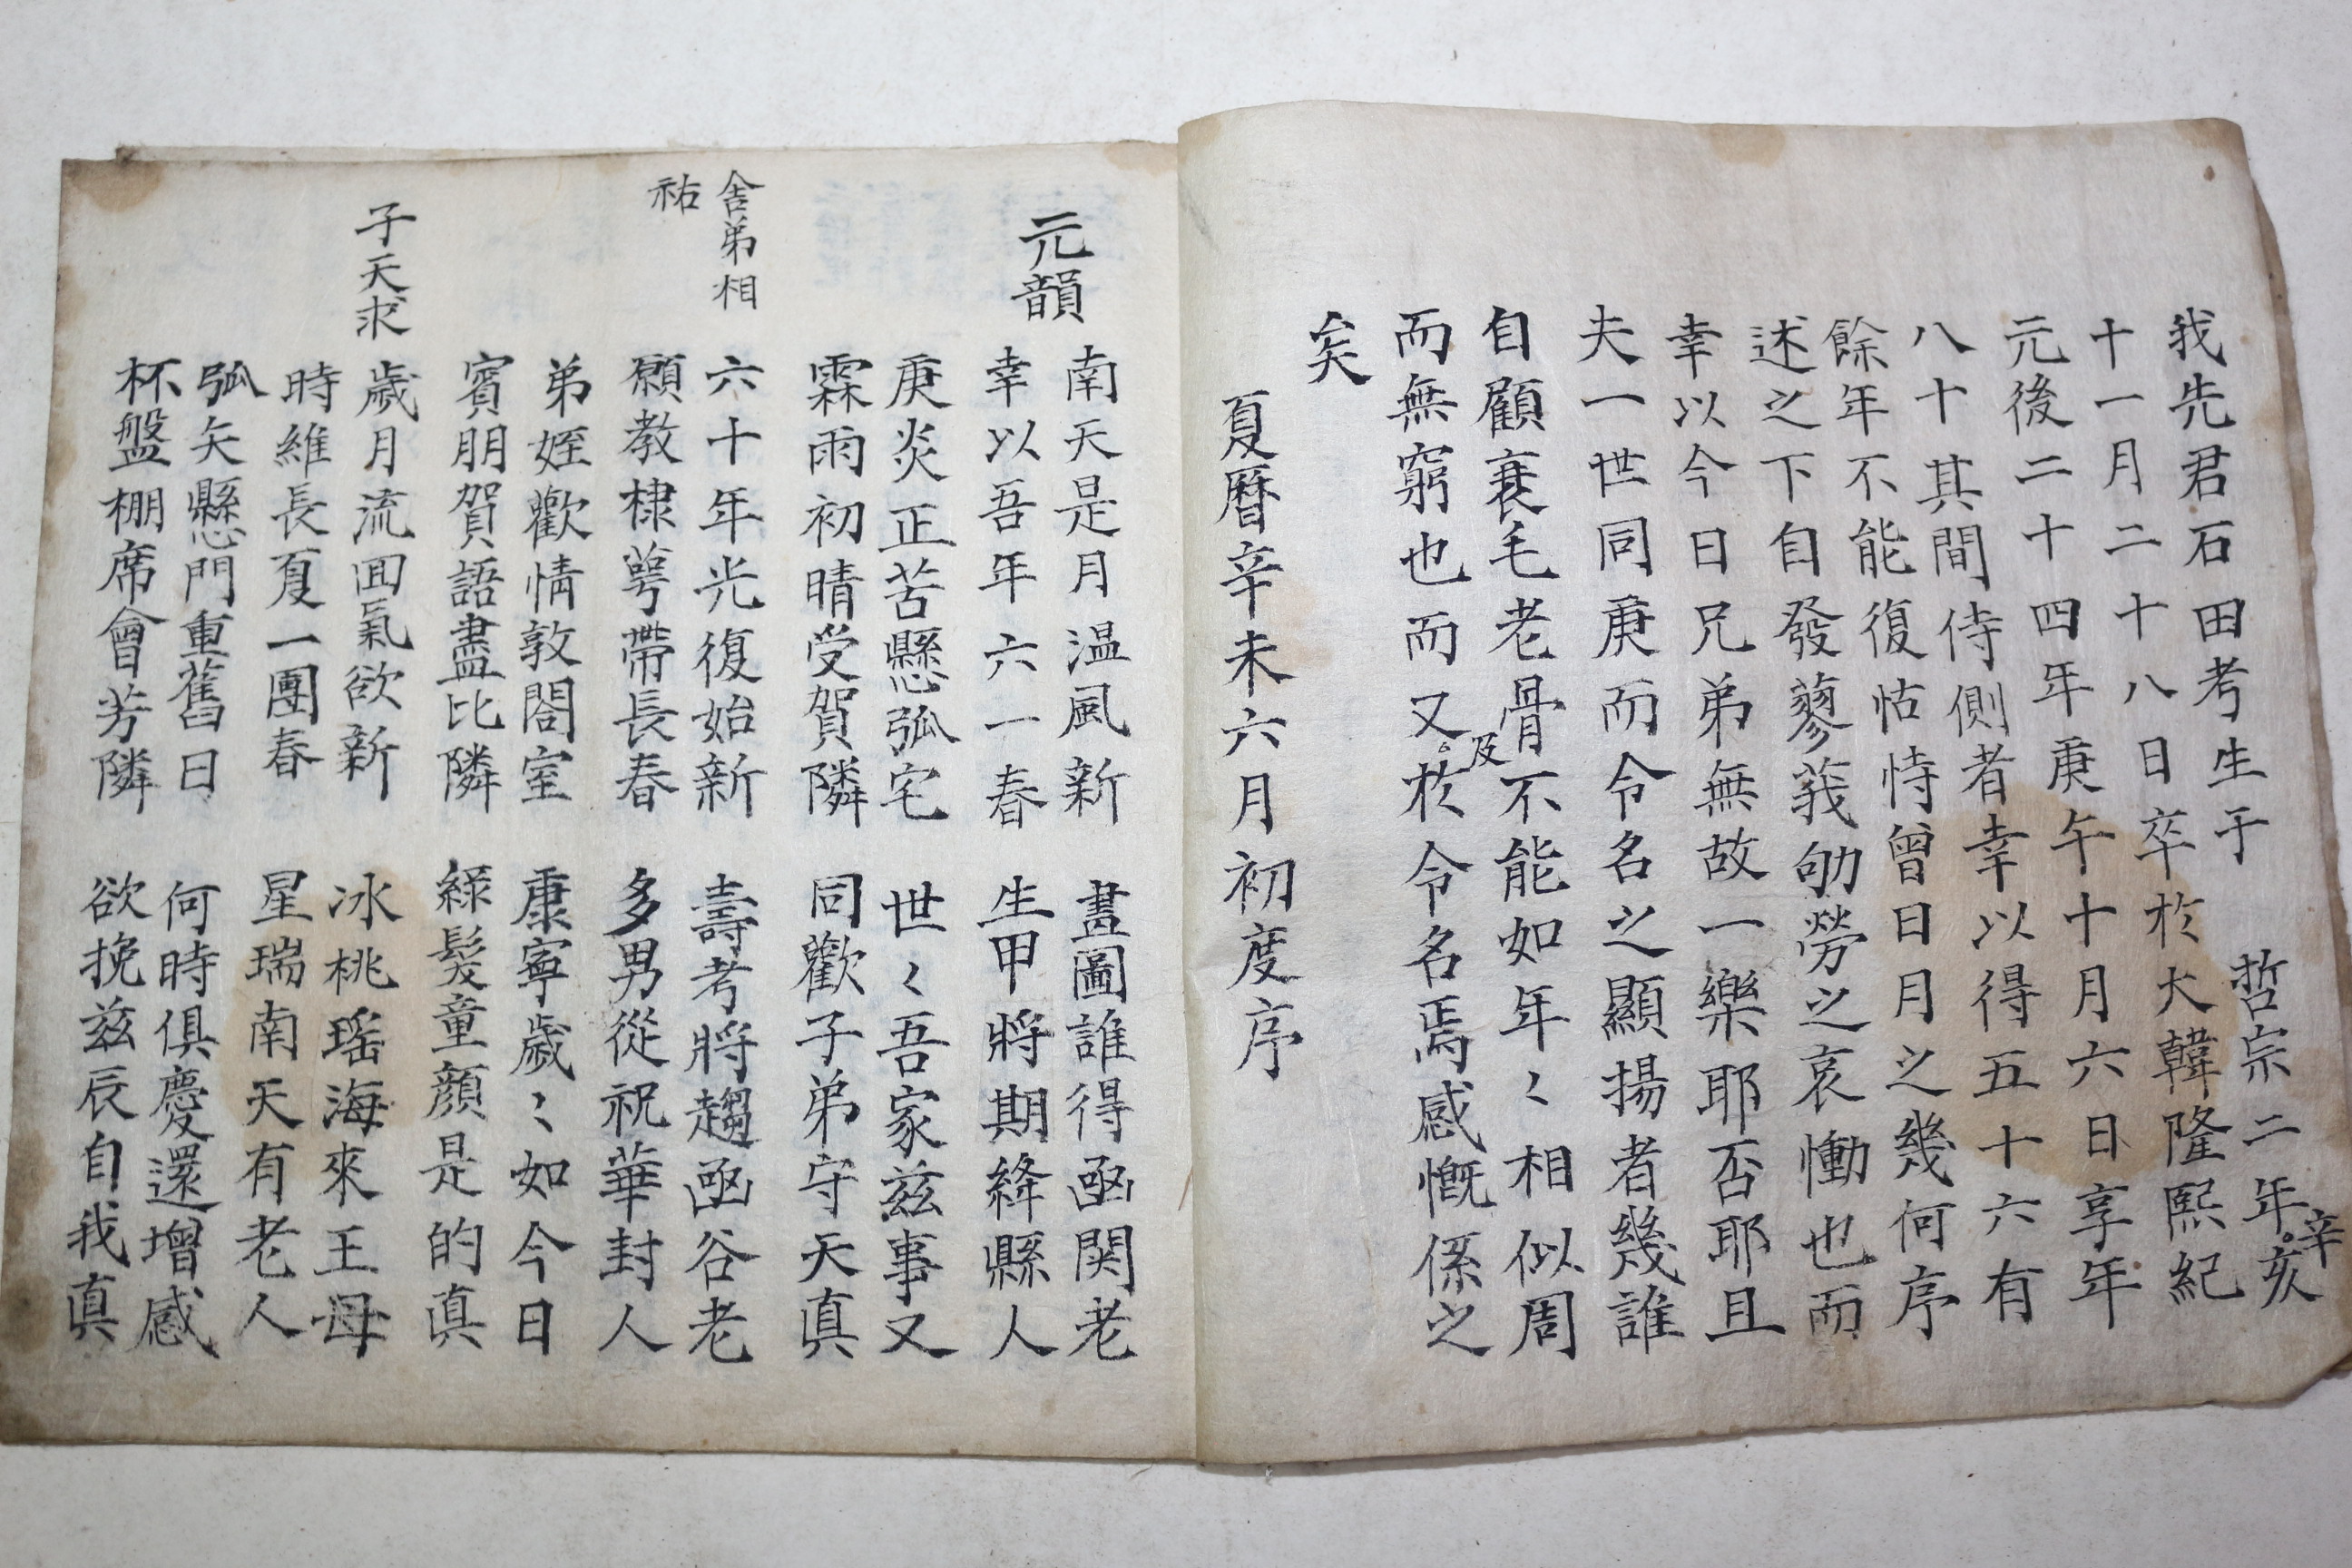 我先君石田考生于 哲宗二年辛亥
十一月二十八日卒於大韓隆熙紀
元後二十四年庚午十月六日享年
八十其間侍側者幸以得五十六有
餘年不能復怙恃曾日月之幾何序
述之下自發蓼莪劬勞之哀慟也而
幸以今日兄弟無故一樂耶否耶且
夫一世同庚而令名之顯揚者幾誰
自顧衰毛老骨不能如年〻相似周
而無窮也而又及於令名焉感慨係之
矣
夏曆辛未六月初度序
元韻
南天是月温風新 畫圖誰得凾関老
幸以吾年六一春 生甲將期絳縣人
庚炎正苦懸弧宅 世〻吾家茲事又
霖雨初晴受賀隣 同歡子弟守天真
舍弟相
祐
六十年光復始新 壽考將趨凾谷老
願教棣萼帶長春 多男從祝華封人
弟姪歡情敦閤室 康寧歲〻如今日
賓朋賀語盡比隣 綠髮童顔是的真
子天求
歲月流囬氣欲新 冰桃瑶海來王母
時維長夏一團春 星瑞南天有老人
弧矢懸門重舊日 何時俱慶還增感
杯盤棚席會芳隣 欲挽茲辰自我真